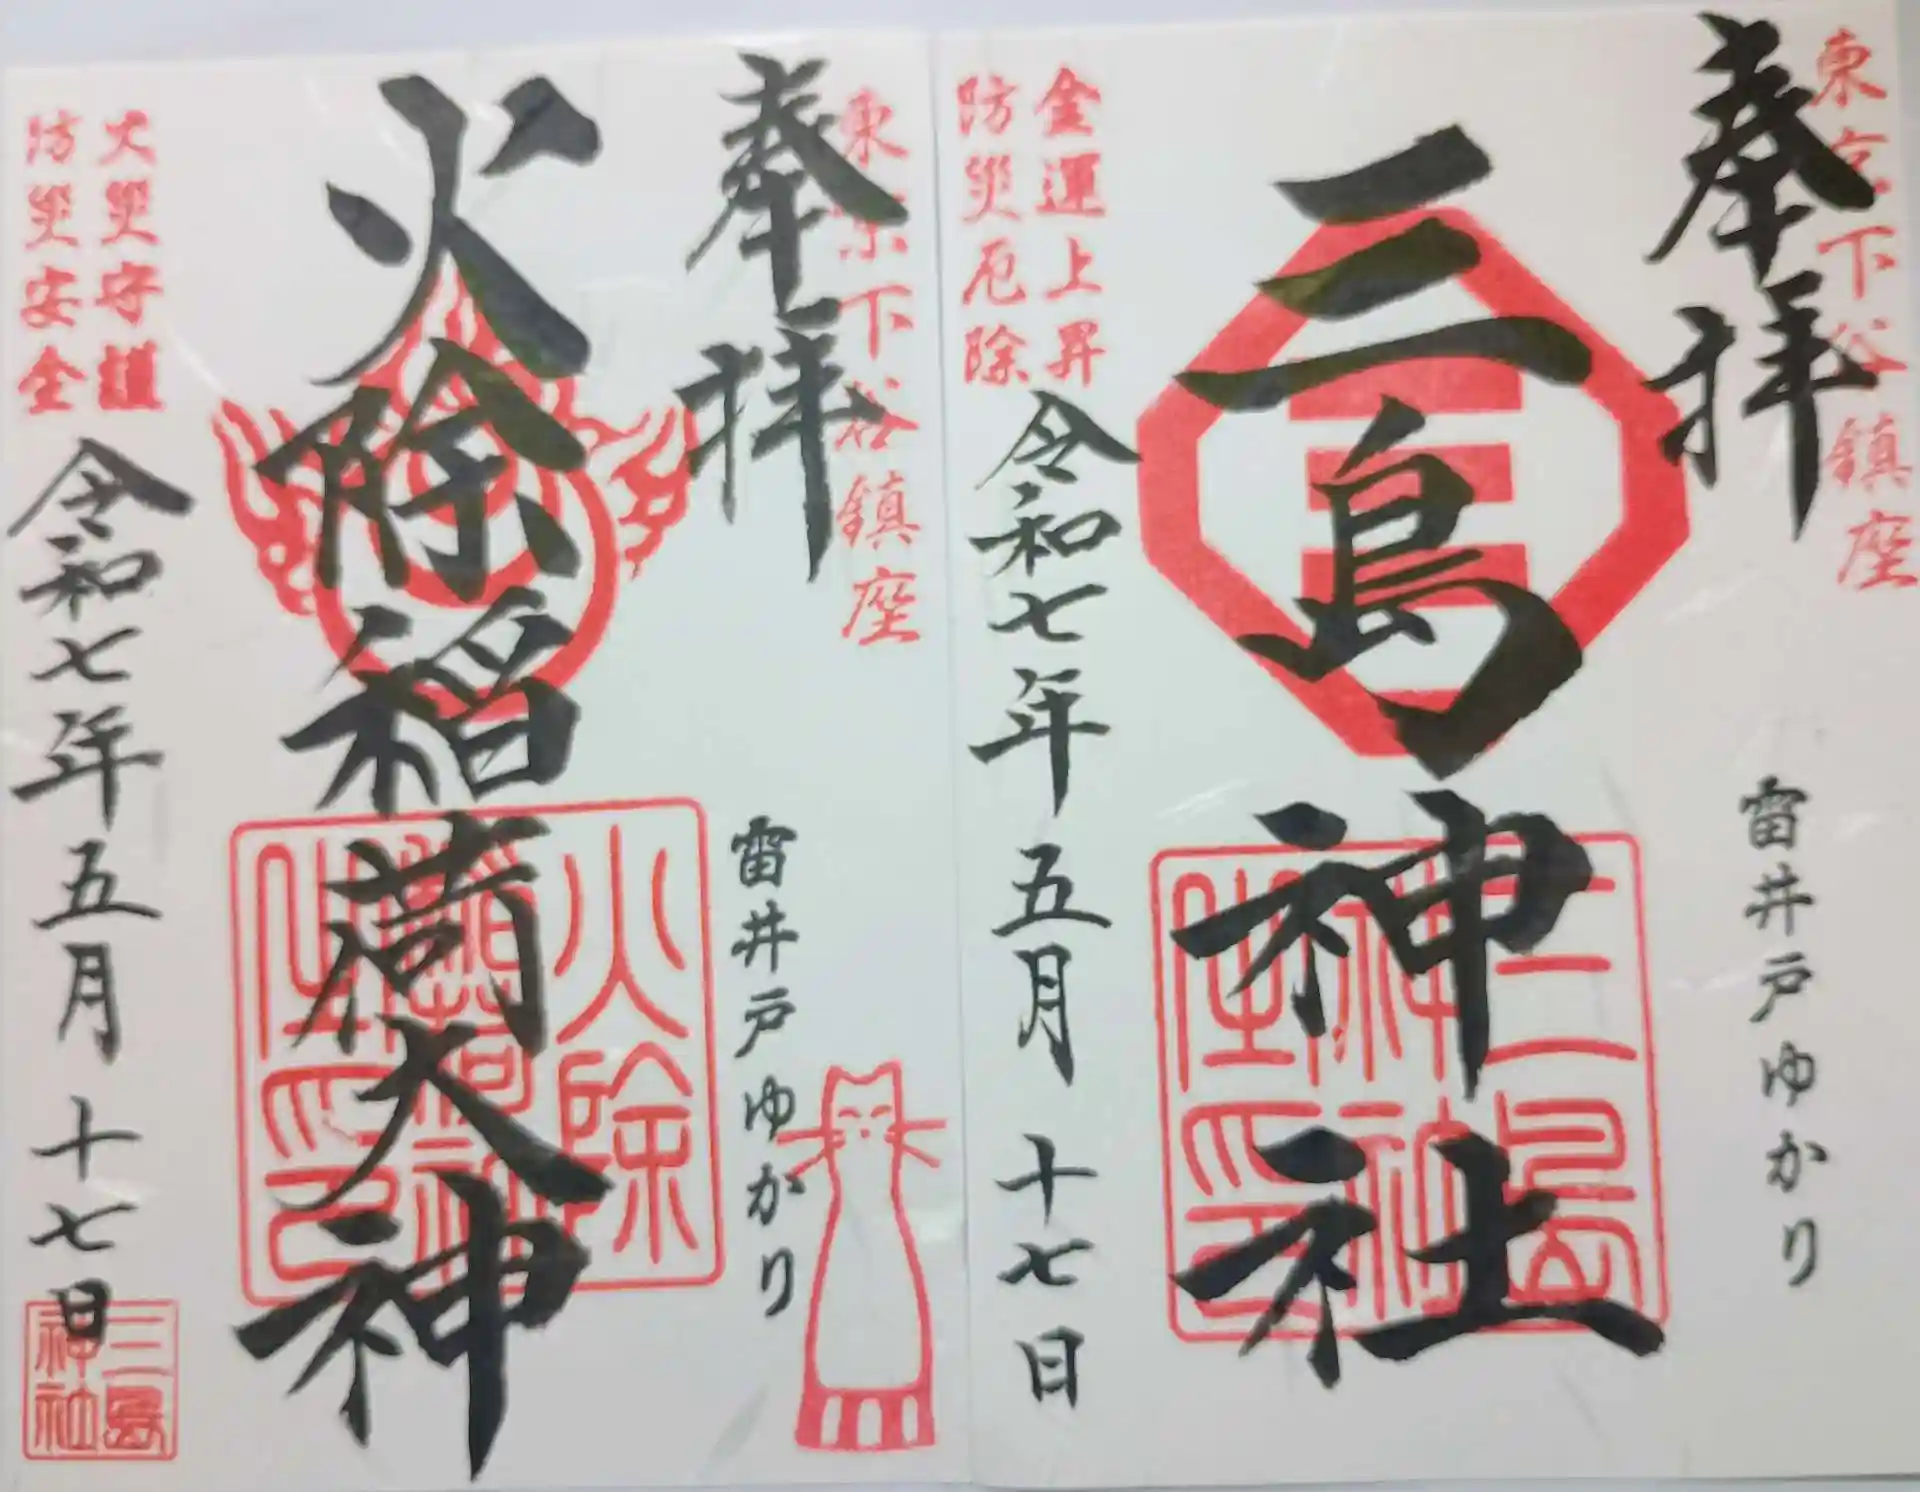 東京下谷鎮座
奉拝
雷井戸ゆかり
三島神社
三島神社之印
金運上昇
防災厄除
令和七年五月十七日
東京下谷鎮座
奉拝
雷井戸ゆかり
火除稲荷大神
火除
火災守護
防災安全
令和七年五月十七日
三島神社